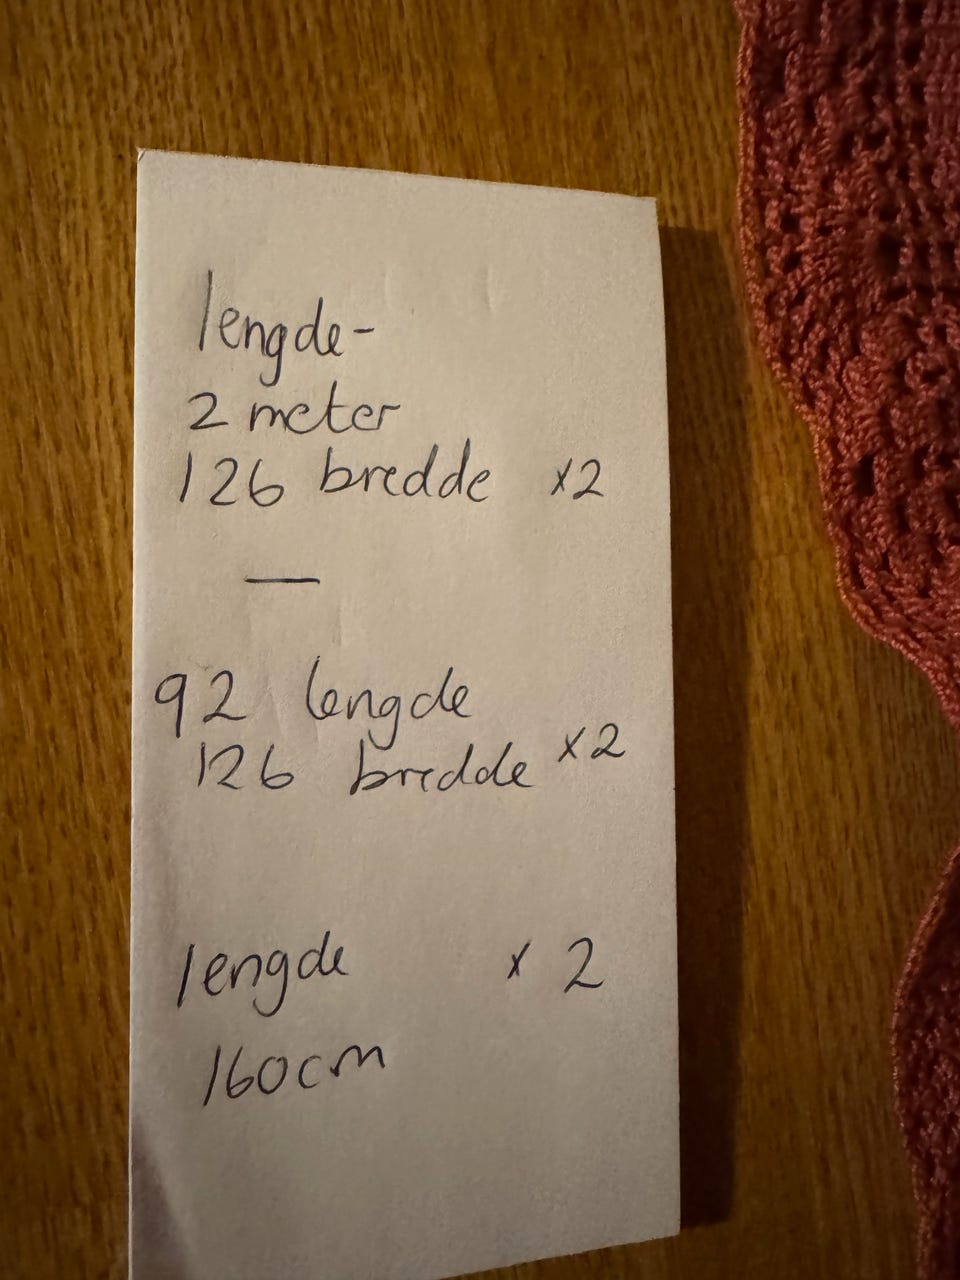 lengde-
2 meter
126 bredde x2
—
92 lengde
126 bredde x2
lengde x 2
160cm